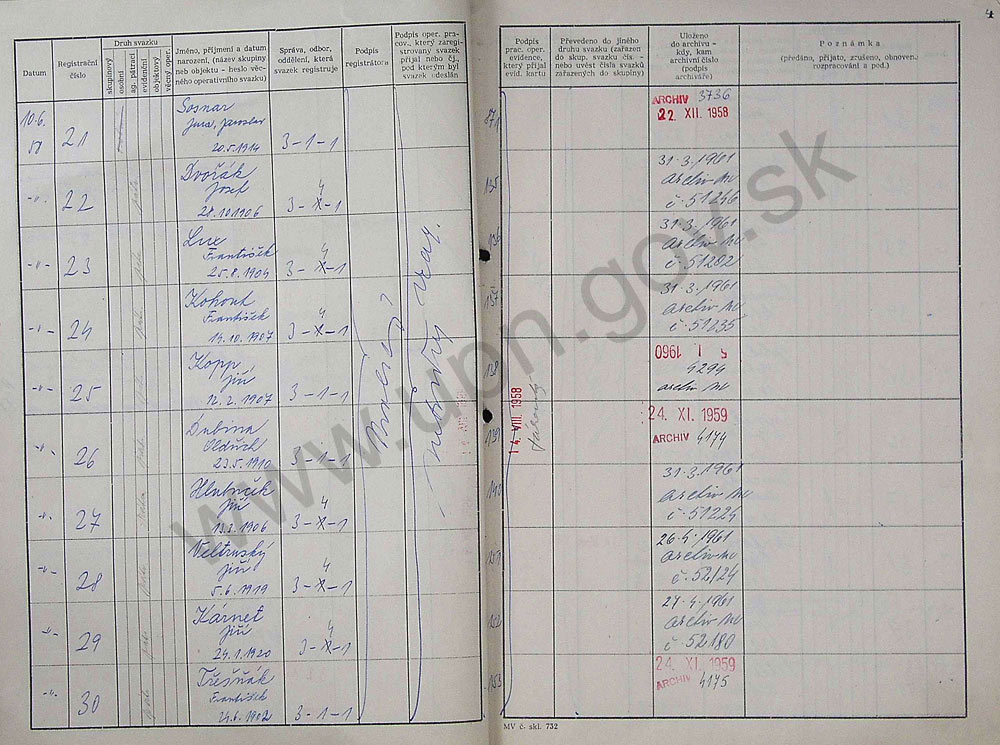 4
Datum
Registrační
číslo
Druh svazku
skupinový
osobní
ag. pátrací
evidenční
objektový
věcný oper.
Jméno, příjmení a datum
narození, (název skupiny
neb objektu - heslo věc-
ného operativního svazku)
Správa, odbor,
oddělení, která
svazek registruje
Podpis
registrátora
Podpis oper. pra-
cov., který zaregi-
strovaný svazek
přijal nebo čj.,
pod kterým byl
svazek odeslán
Podpis
prac. oper.
evidence,
který přijal
evid. kartu
Převedeno do jiného
druhu svazku (zařazen
do skup. svazku čís. -
nebo uvést čísla svazků
zařazených do skupiny)
Uloženo
do archivu -
kdy, kam
archivní číslo
(podpis
archiváře)
Poznámka
(předáno, přijato, zrušeno, obnoven.
rozpracování a pod.)
10.6.
58
21
Sosnar
Jura, Jaroslav
20.5.1914
3-1-1
871
ARCHIV 3736
22 XII. 1958
-"-
22
Dvořák
Josef
28.10.1906
4
3-X-1
135
31.3.1961
archiv MV
č. 51246
-"-
23
Lux
František
25.8.1904
4
3-X-1
136
31.3.1961
archiv MV
č. 51202
-"-
24
Kohout
František
14.10.1907
4
3-X-1
137
31.3.1961
archiv MV
č. 51235
-"-
25
Kopp
Jiří
12.2.1907
3-1-1
138
5 I. 1960
4294
archiv MV
-"-
26
Dubina
Oldřich
23.5.1910
3-1-1
139
14. VIII. 1958
24. XI. 1959
ARCHIV 4174
-"-
27
Hlubuček
Jiří
13.3.1906
4
3-X-1
140
31.3.1961
archiv MV
č. 51224
-"-
28
Veltruský
Jiří
5.6.1919
4
3-X-1
151
26.4.1961
archiv MV
č. 52124
-"-
29
Kárnet
Jiří
24.1.1920
4
3-X-1
152
27.4.1961
archiv MV
č. 52180
-"-
30
Třešňák
František
24.6.1902
3-1-1
153
24. XI. 1959
ARCHIV 4175
MV č. skl. 732
www.upn.gov.sk